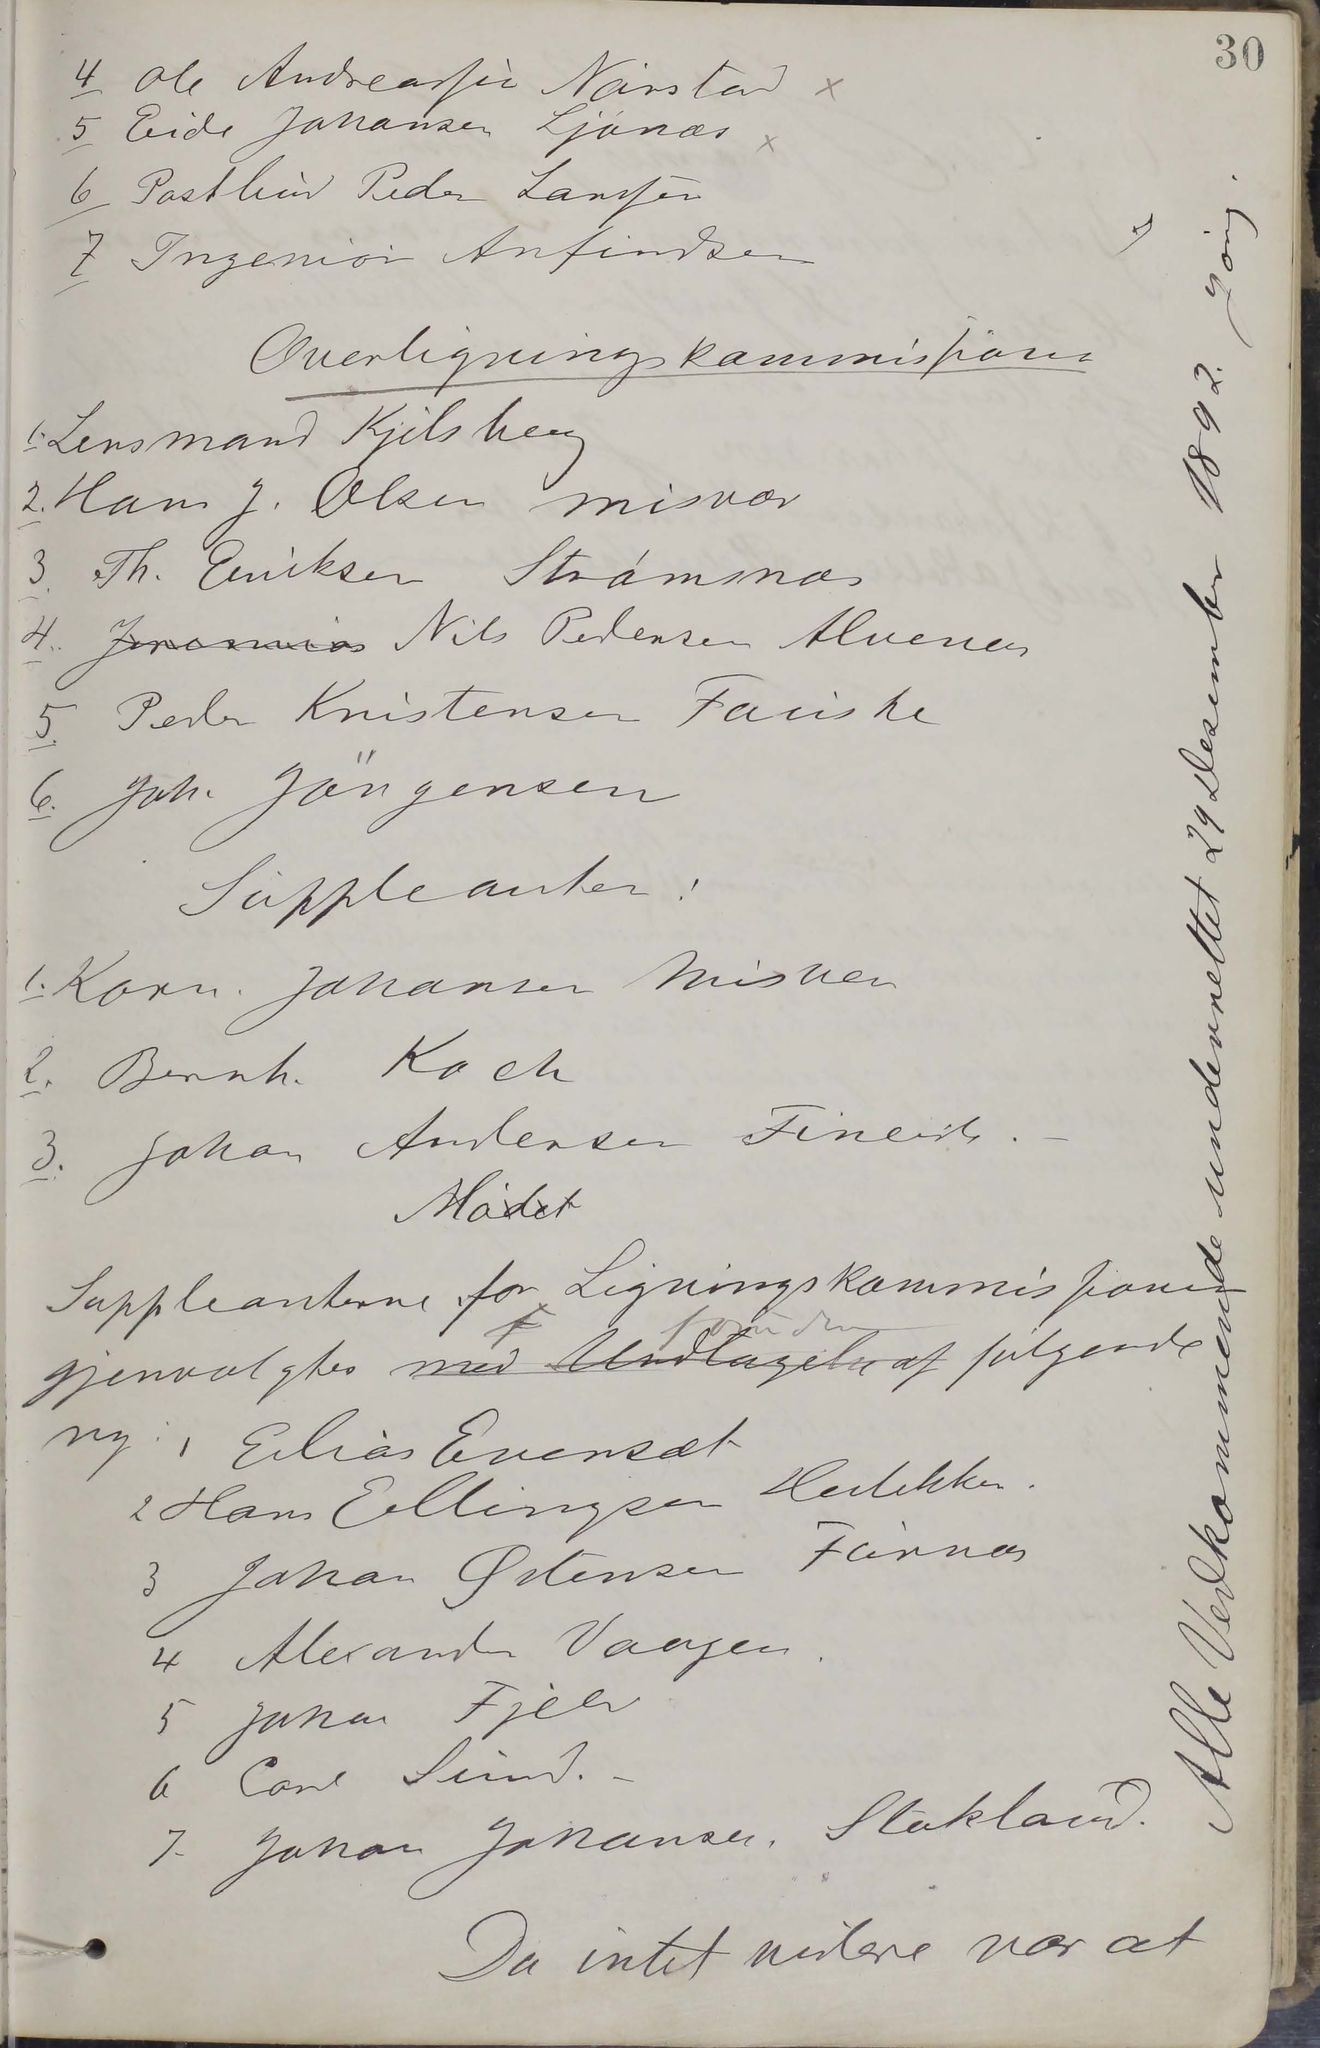 30
4 Ole Andreassen Nærstad x
5 Eide Johansen Ljönæs x
6 Peder Larssen
7 Ingeniör Anfindsen
Overligningskommissionen
1. Lensmand Kjelsberg
2. Hans J. Olsen Misvær
3. Th. Eriksen Strömsnæs
4. Jeremias Nils Pedersen Alvenes
5. Peder Kristensen Fauske
6. Joh. Jörgensen
Suppleanter:
1. Korn. Johansen Misvær
2. Bernh. Koch
3. Johan Andersen Fineide. –
Mödet
Suppleanterne for Ligningskommissionen
foruden
gjenvalgtes med Undtagelse af fölgende
ny: 1 Elias Evensæt
2 Hans Ellingsen
3 Johan Østensen Furnes
4 Alexander Vaagen.
5 Johan Fjell
6 Carl Sund. –
7. Johan Johansen, Stokland.
Da intet videre var at
Alle Vedkommende underrettet 29 Desember 1892. Jörg.